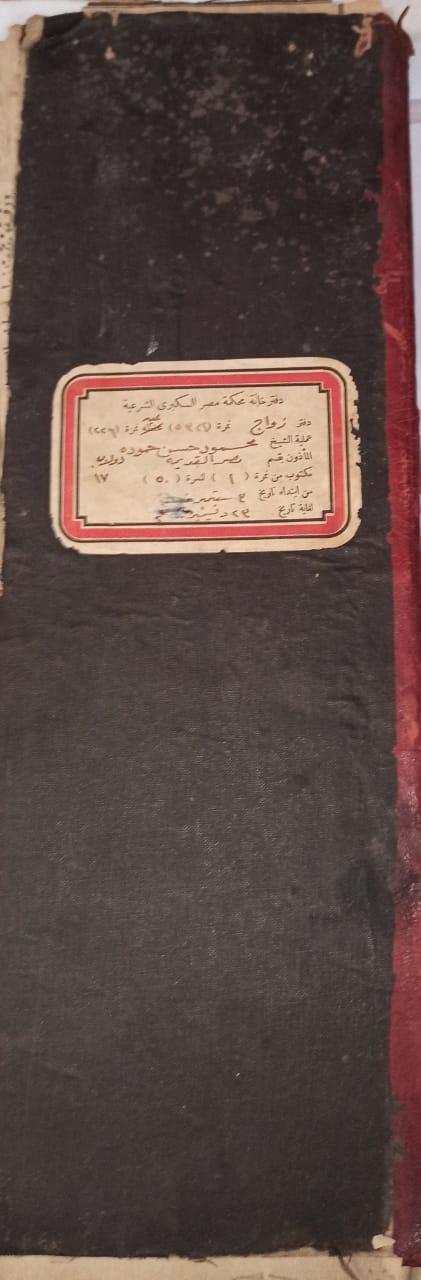 دفترخانة محكمة مصر الكبرى الشرعية
دفتر زواج نمرة (٥٤٢٩) نمرة (٢٢٦)
عملية الشيخ محمود حسن حموده
المأذون بقسم مصر القديمة دولاب
مكتوب من نمرة (١) لنمرة (٥٠) ١٧
من ابتداء تاريخ ٤ سبتمبر
لغاية تاريخ ٢٣ ديسمبر